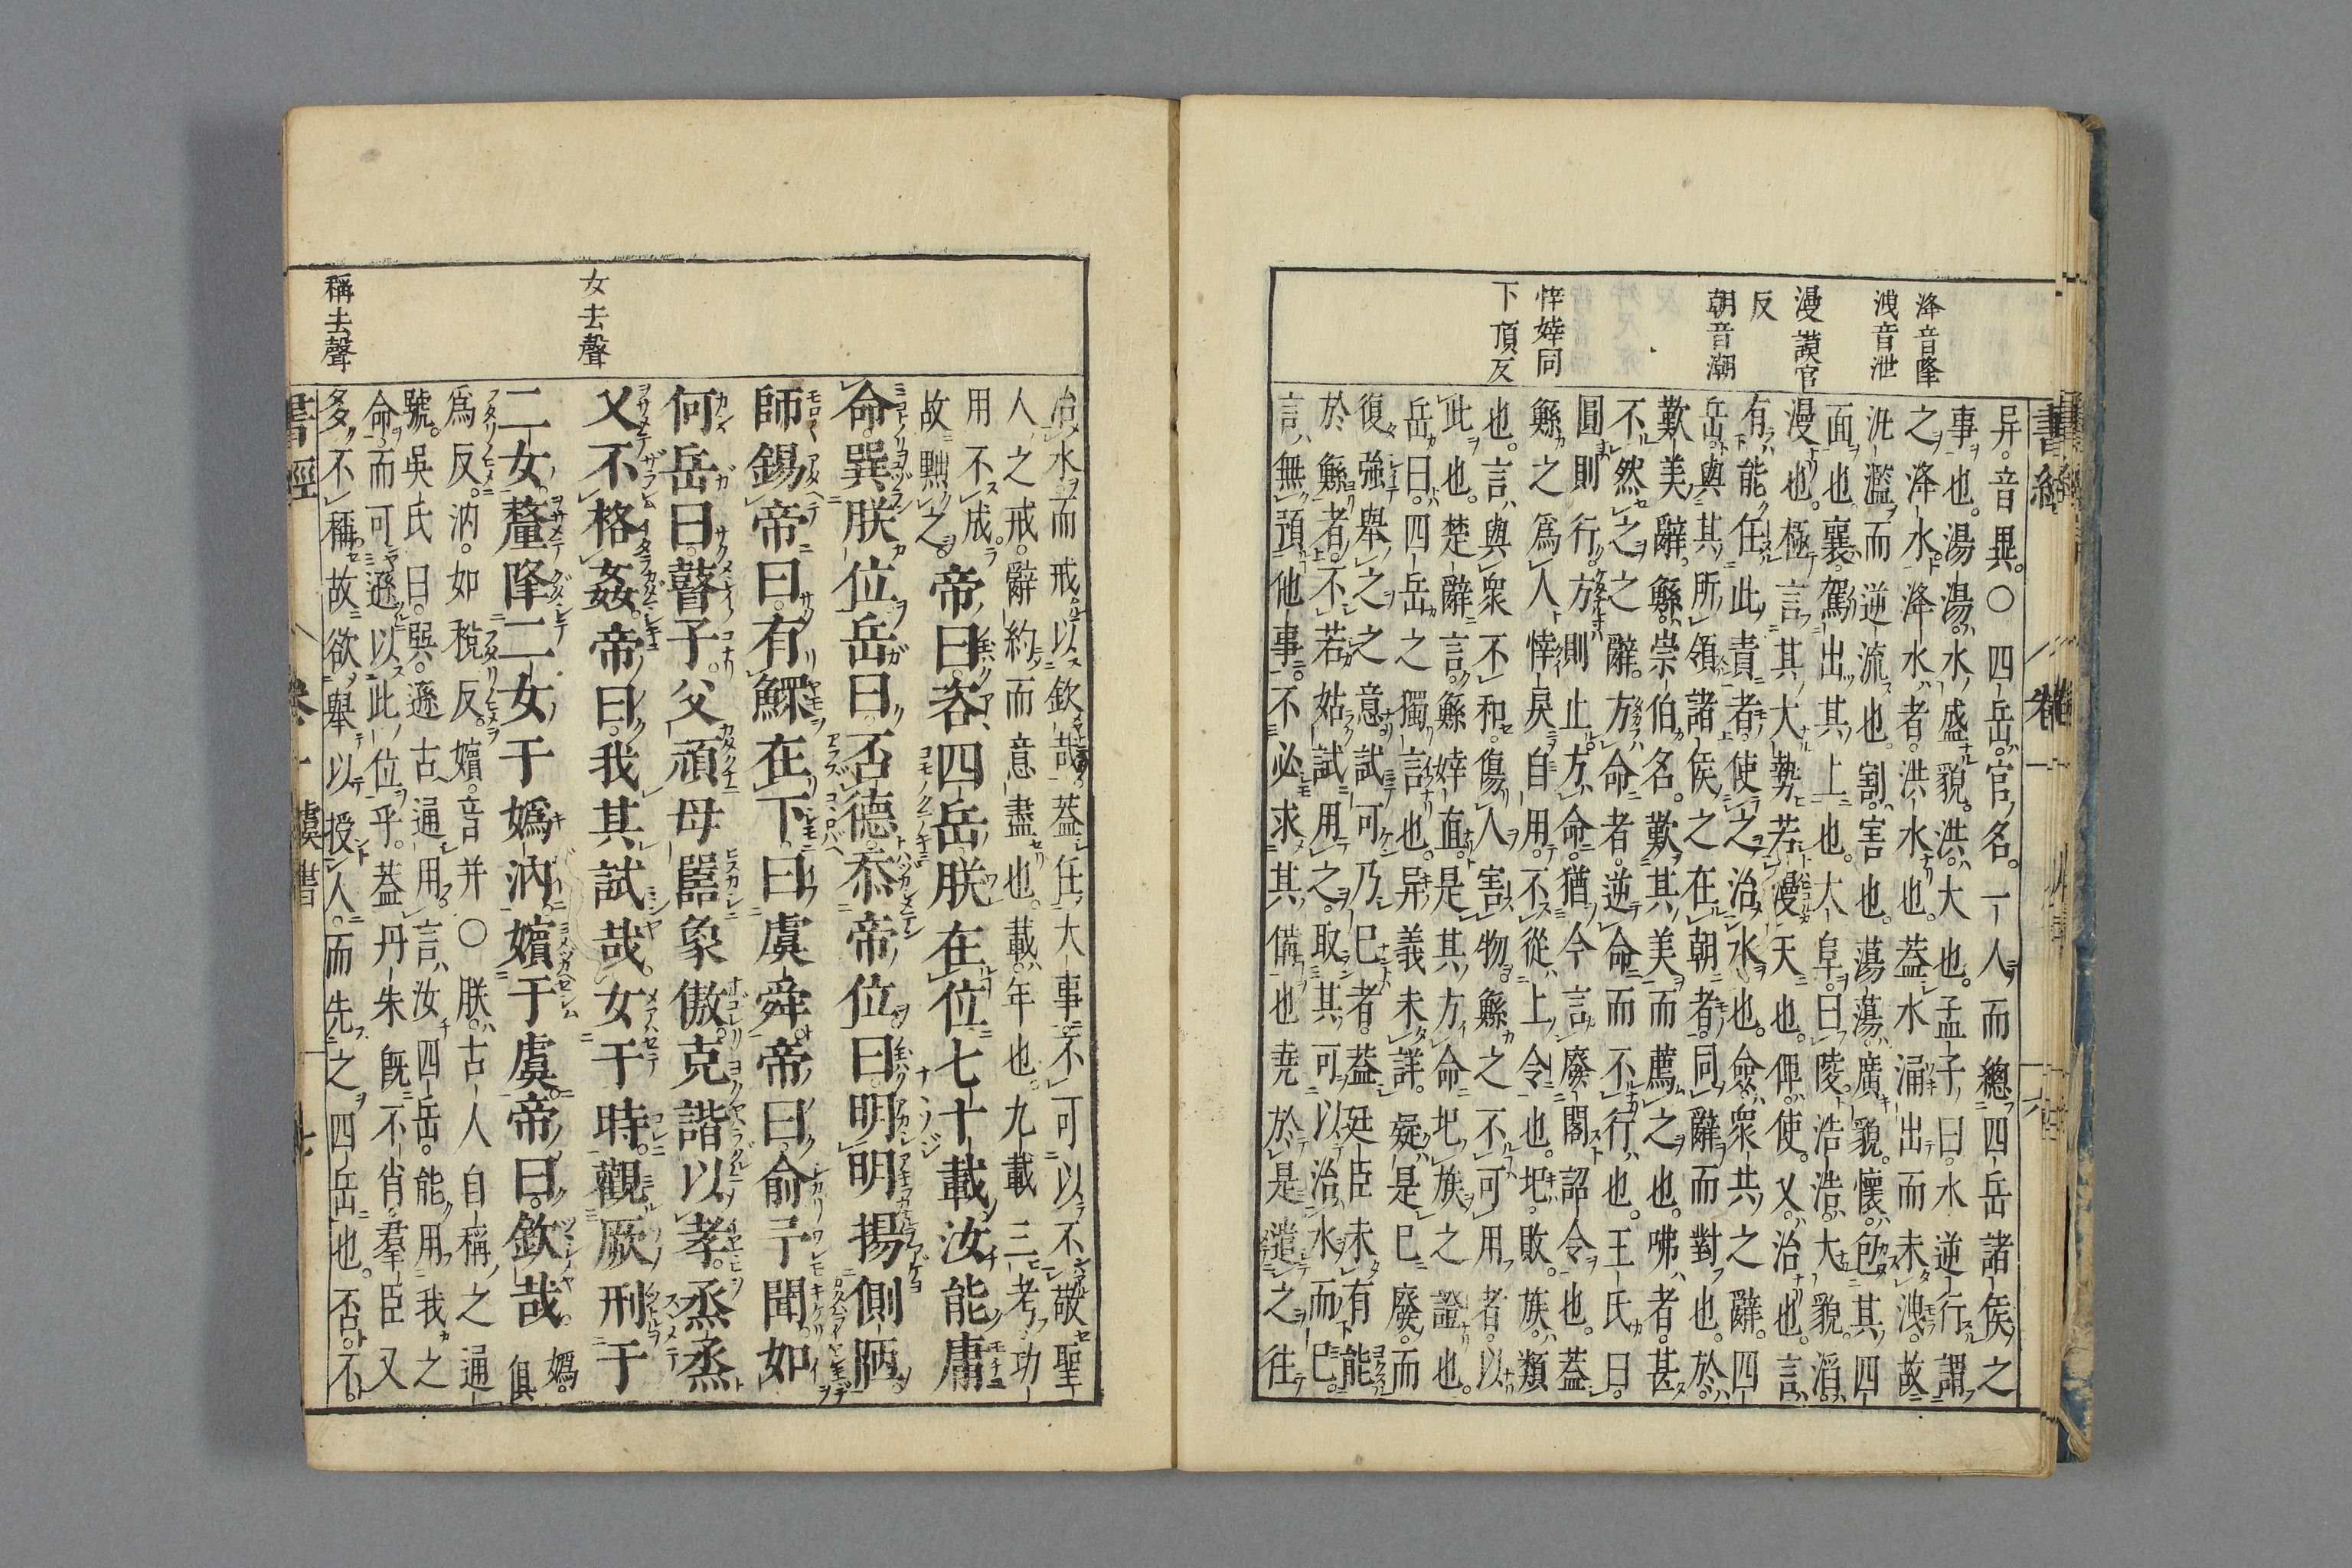 書經
卷一
六
洚音降
洩音泄
漫謨官
反
朝音潮
悻婞同
下頂反
异。音異。〇四岳。官名。一人而總四岳諸侯之
事也。湯湯。水盛貌。洪。大也。孟子曰。水逆行。謂
之洚水。洚水者。洪水也。蓋水涌出而未洩。故
汎濫而逆流也。割。害也。蕩蕩。廣貌。懷。包其四
面也。襄。駕出其上也。大阜曰陵。浩浩。大貌。滔。
漫也。極言其大。勢若漫天也。俾。使。乂。治也。言
有能任此責者。使之治水也。僉。衆共之辭。四
岳與其所領諸侯之在朝者。同辭而對也。於。
歎美辭。鯀。崇伯名。歎其美而薦之也。咈者。甚
不然之之辭。方命者。逆命而不行也。王氏曰。
圓則行。方則止。方命。猶今言廢閣詔令也。蓋
鯀之爲人。悻戾自用。不從上令也。圮。敗。族。類
也。言與衆不和。傷人害物。鯀之不可用者。以
此也。楚辭言。鯀婞直。是其方命圮族之證也。
岳曰。四岳之獨言也。异義未詳。疑是已廢。而
復強舉之之意。試可乃已者。蓋廷臣未有能
於鯀者。不若姑試用之。取其可以治水而已。
言無預他事。不必求其備也。堯於是遣之往
女去聲
稱去聲
治水。而戒以欽哉。蓋任大事。不可以不敬。聖
人之戒。辭約而意盡也。載。年也。九載三考。功
用不成。故黜之。
帝曰。咨四岳。朕在位七十載。汝能庸
命。巽朕位。岳曰。否德。忝帝位。曰。明明揚側陋。
師錫帝曰。有鰥在下。曰虞舜。帝曰。俞。予聞。如
何。岳曰。瞽子。父頑母嚚象傲。克諧以孝。烝烝
乂不格姦。帝曰。我其試哉。女于時。觀厥刑于
二女。釐降二女于嬀汭。嬪于虞。帝曰。欽哉。
嬀。俱
爲反。汭。如稅反。嬪。音幷〇朕。古人自稱之通
號。吳氏曰。巽。遜。古通用。言汝四岳。能用我之
命。而可遜以此位乎。蓋丹朱旣不肖。羣臣又
多不稱。故欲舉以授人。而先之四岳也。否。不。
書經
卷一
虞書
七